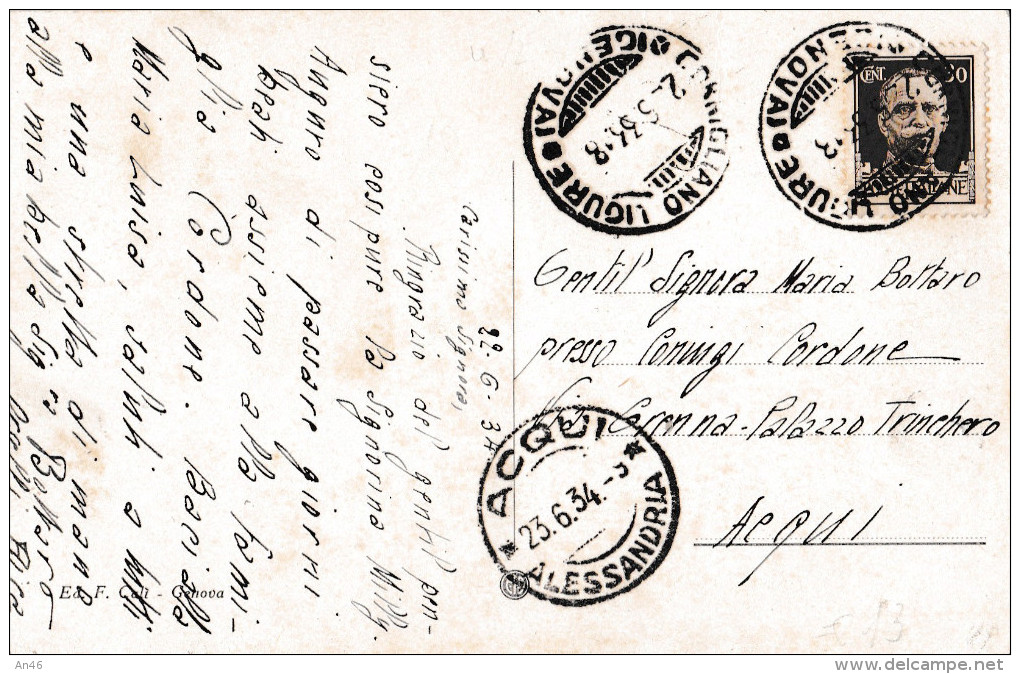 22. 6. 34
Carissima Signora,
Ringrazio del gentil pen-
siero così pure la Signorina Milly.
Auguro di passare giorni
beati assieme alla fami-
glia Cordone. Baci alla
Maria Luisa, saluti a tutti
e una stretta di mano
alla mia bella Sig.ra Bottaro
Ed. F. Calì - Genova
CORNIGLIANO LIGURE
(GENOVA)
LIGURE
(GENOVA)
CENT. 30
Gentil' Signora Maria Bottaro
presso Coniugi Cordone
Via Cerenna - Palazzo Trinchero
Acqui
ACQUI
23.6.34.
ALESSANDRIA
An46
www.delcampe.net